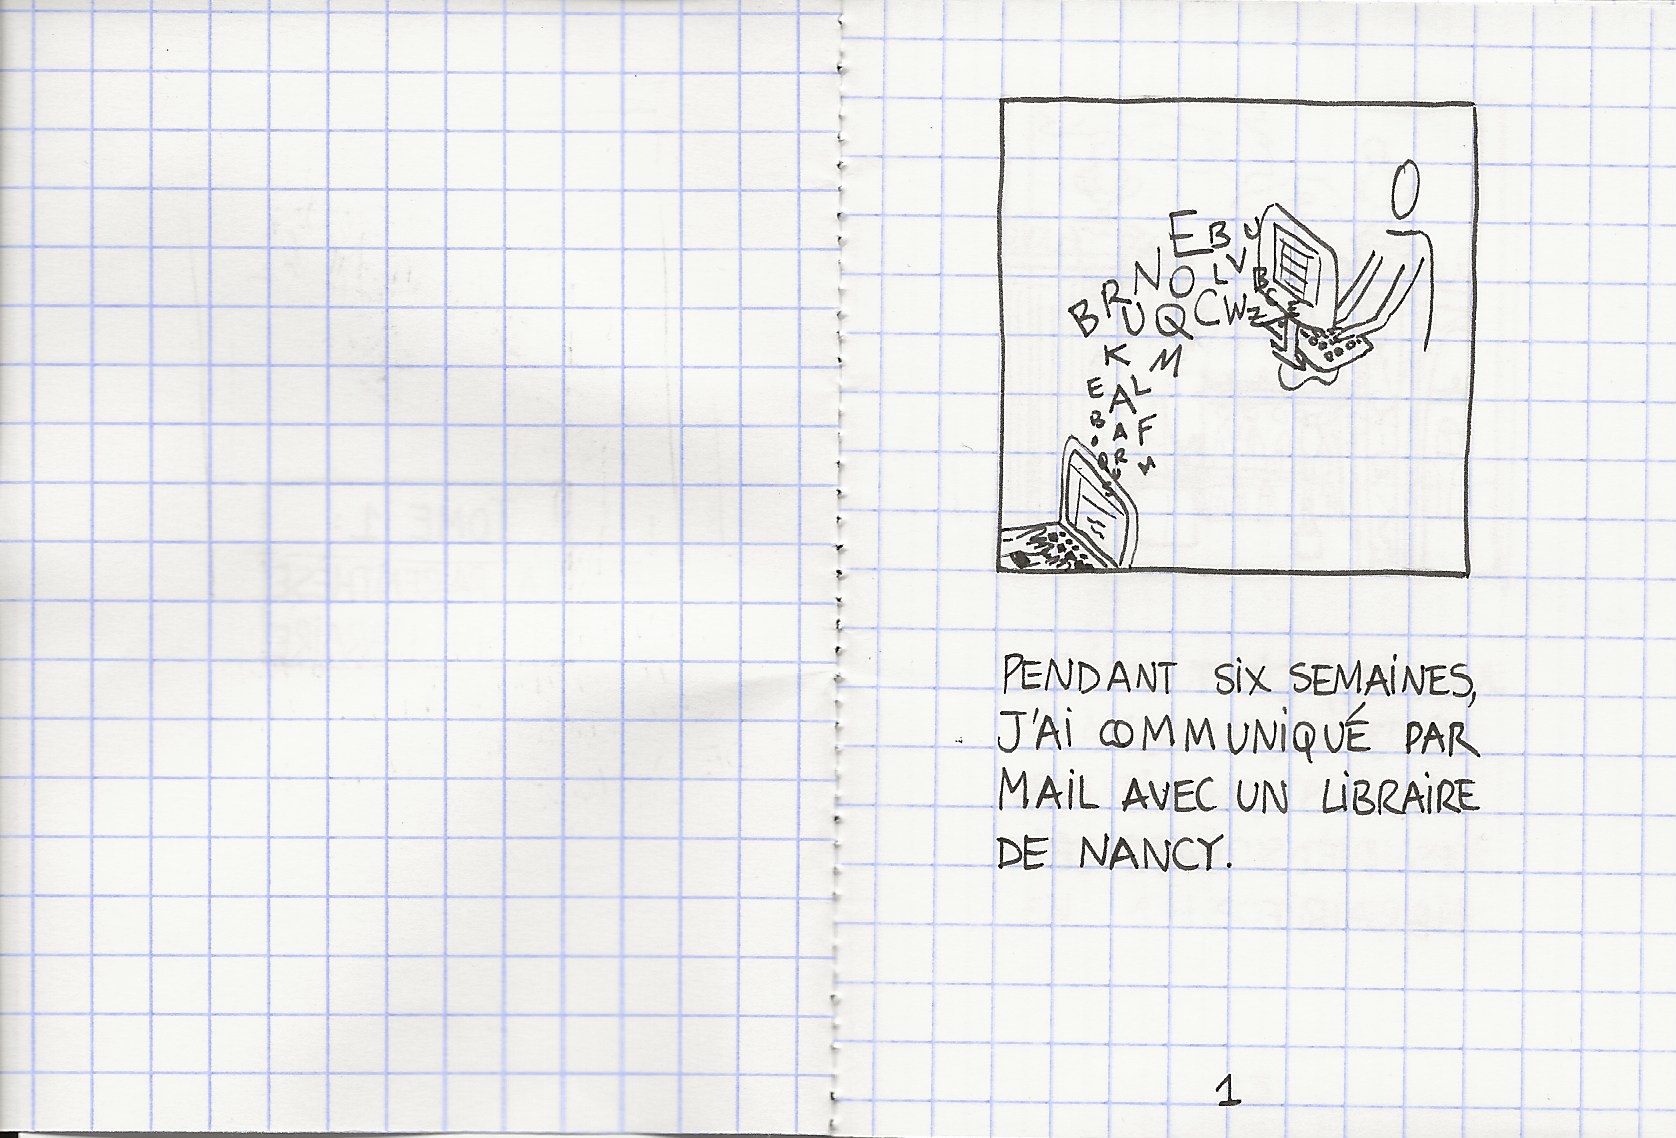 E B U
N O L V B
B R U Q C W Z
K M
E A L
B A F
R M
PENDANT SIX SEMAINES,
J'AI COMMUNIQUÉ PAR
MAIL AVEC UN LIBRAIRE
DE NANCY.
1